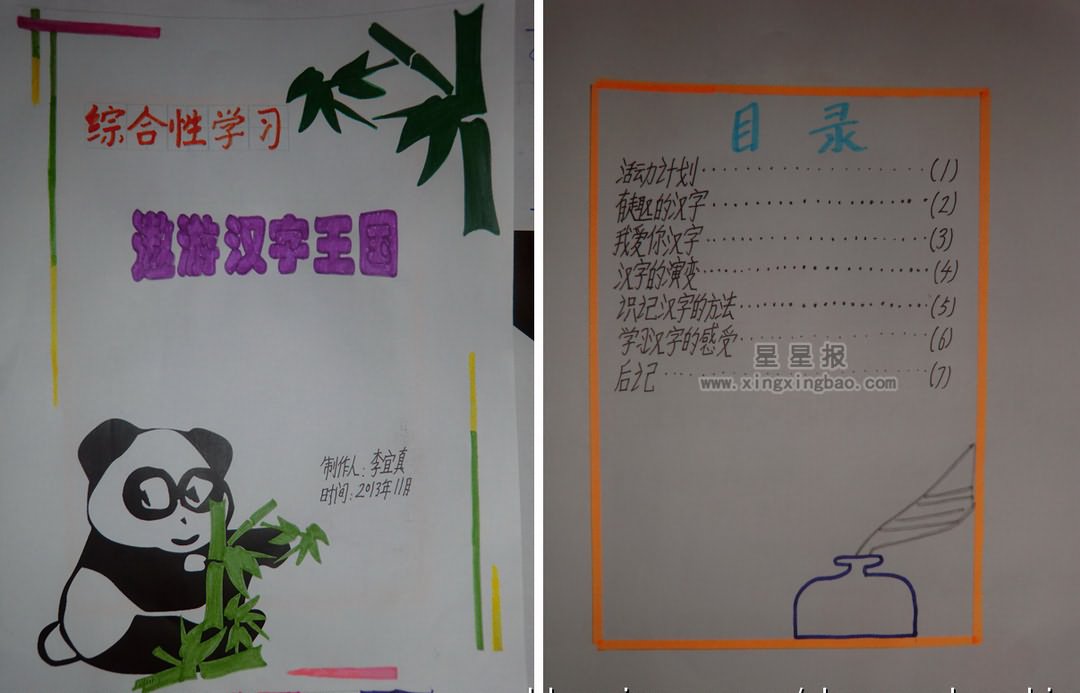 综合性学习
遨游汉字王国
制作人:李宜真
时间:2013年11月
目录
活动计划··················(1)
有趣的汉字··················(2)
我爱你汉字··················(3)
汉字的演变··················(4)
识记汉字的方法··················(5)
学习汉字的感受··················(6)
后记··················(7)
星星报
www.xingxingbao.com